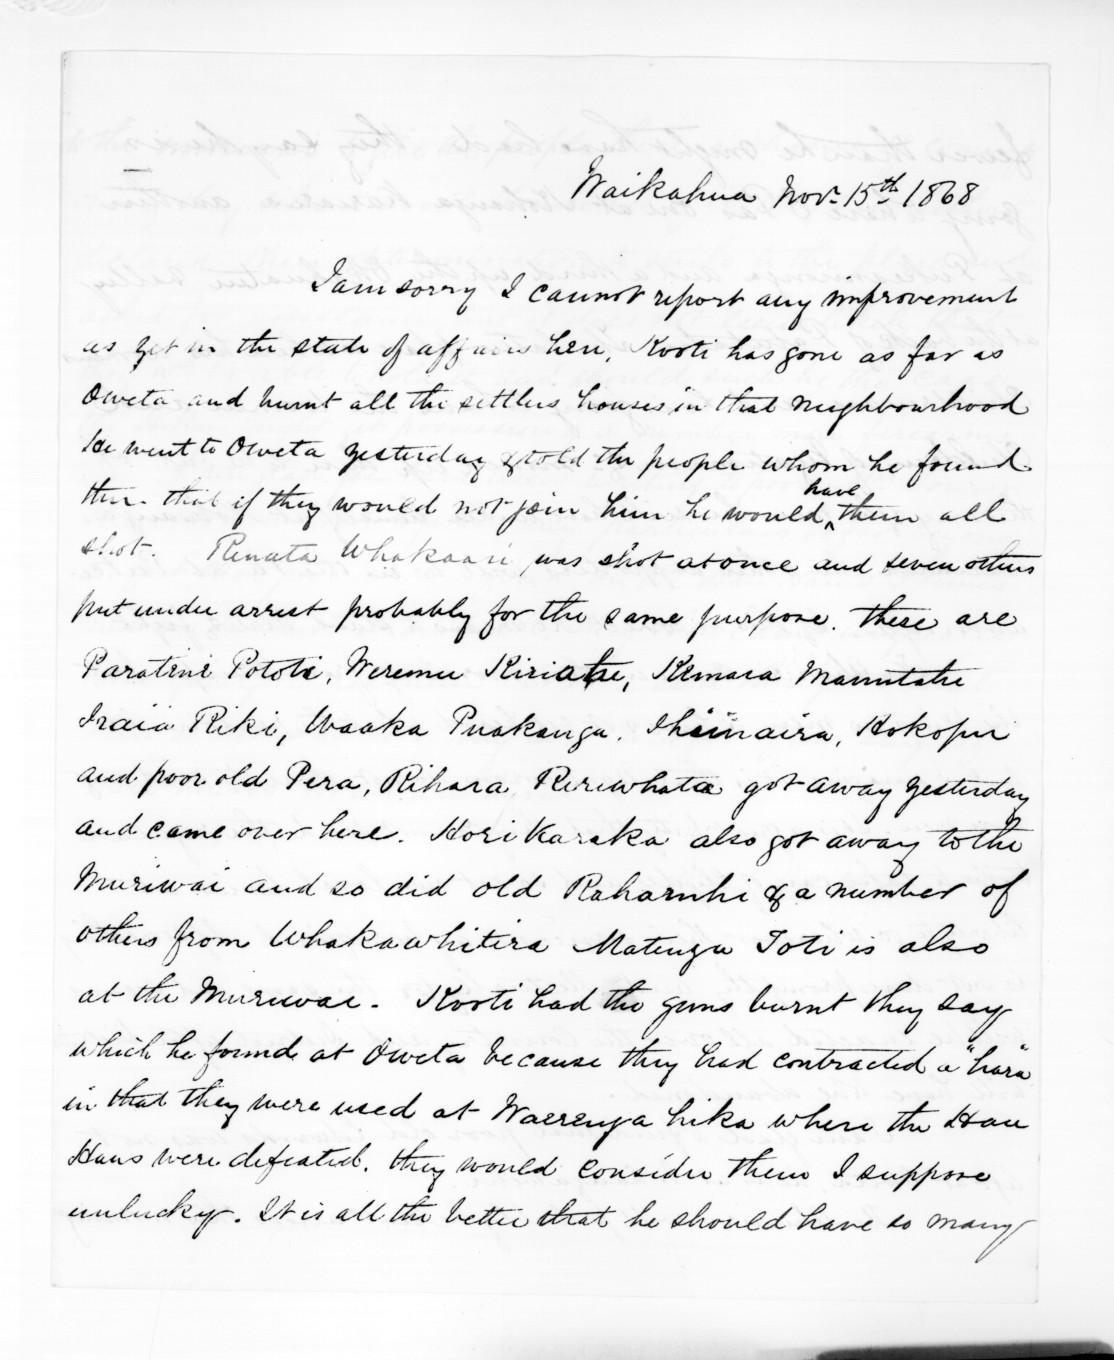 Waikahua Novr. 15th. 1868
I am sorry I cannot report any improvement
as yet in the state of affairs here, Kooti has gone as far as
Oweta and burnt all the settlers houses in that neighbourhood
He went to Oweta yesterday & told the people whom he found
there that if they would not join him he would have them all
shot. Renata Whakaari was shot at once and seven others
put under arrest probably for the same purpose. these are
Paratene Pototi, Weremu Kiriatu, Kemara Manutahi
Iraia Riki, Waaka Puakanga. Ihimaira, Hokopu
and poor old Pera, Rihara Reriwhata got away yesterday
and came over here. Hori Karaka also got away to the
Muriwai and so did old Raharuhi & a number of
others from Whakawhitira Matenga Toti is also
at the Muriwai. Kooti had the guns burnt they say
which he found at Oweta because they had contracted a "hara"
in that they were used at Waerenga hika where the Hau
Haus were defeated. they would consider them I suppose
unlucky. It is all the better that he should have so many